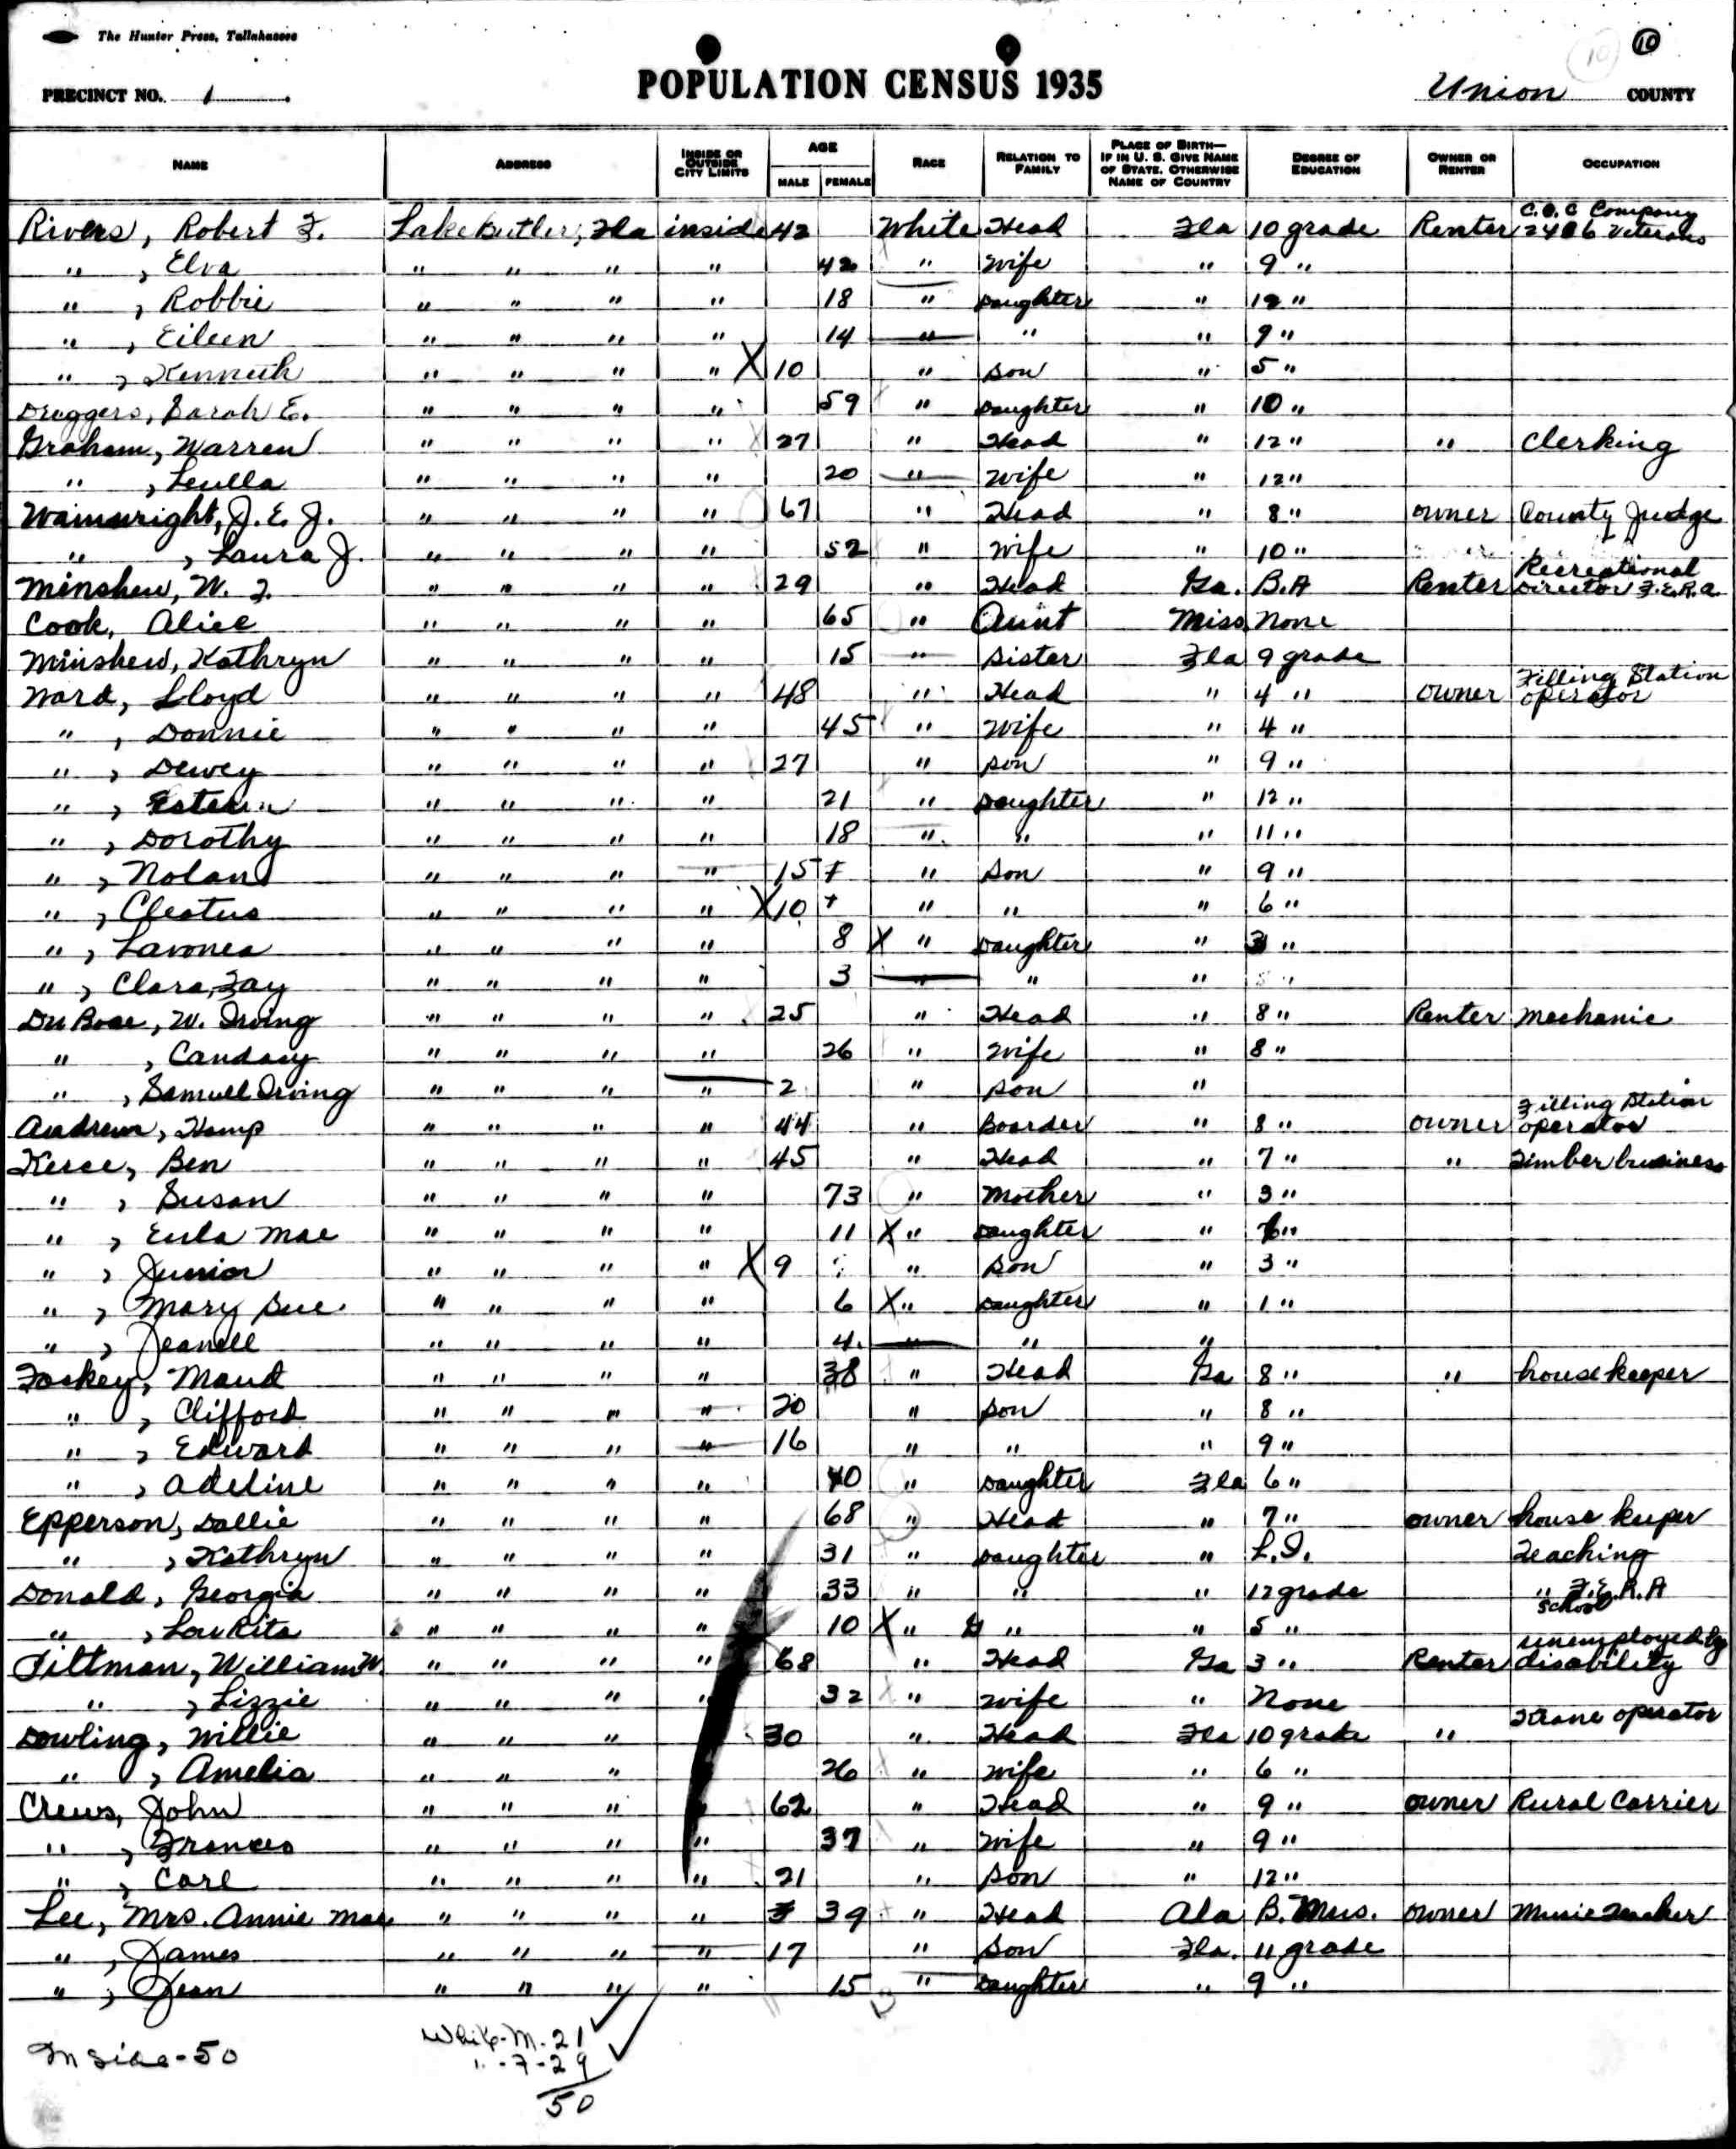 The Hunter Press, Tallahassee
10 10
PRECINCT NO. 1 POPULATION CENSUS 1935 Union COUNTY
NAME ADDRESS INSIDE OR OUTSIDE CITY LIMITS AGE MALE FEMALE RACE RELATION TO FAMILY PLACE OF BIRTH— IF IN U. S. GIVE NAME OF STATE. OTHERWISE NAME OF COUNTRY DEGREE OF EDUCATION OWNER OR RENTER OCCUPATION
Rivers, Robert F. Lake Butler, Fla inside 42 White Head Fla 10 grade Renter C.C.C Company 2406 Veterans
" , Elva " " " " 42 " Wife " 9 "
" , Robbie " " " " 18 " Daughter " 12 "
" , Eileen " " " " 14 " " " 9 "
" , Kenneth " " " " X 10 " Son " 5 "
Druggers, Sarah E. " " " " 59 " Daughter " 10 "
Graham, Warren " " " " 27 " Head " 12 " " Clerking
" , Luella " " " " 20 " Wife " 12 "
Wainwright, J. E. J. " " " " 67 " Head " 8 " owner County Judge
" , Laura J. " " " " 52 " Wife " 10 "
Minshew, W. T. " " " " 29 " Head Ga. B.A Renter Recreational Director F.E.R.A.
Cook, Alice " " " " 65 " Aunt Miss None
Minshew, Kathryn " " " " 15 " Sister Fla 9 grade
Ward, Lloyd " " " " 48 " Head " 4 " owner Filling Station operator
" , Donnie " " " " 45 " Wife " 4 "
" , Dewey " " " " 27 " Son " 9 "
" , " " " " 21 " Daughter " 12 "
" , Dorothy " " " " 18 " " " 11 "
" , Nolan " " " " 15 + " Son " 9 "
" , Cleatus " " " " X 10 + " " " 6 "
" , Lavonea " " " " 8 X " Daughter " 3 "
" , Clara Fay " " " " 3 " " "
DuBose, W. Irving " " " " 25 " Head " 8 " Renter Mechanic
" , Candacy " " " " 26 " Wife " 8 "
" , Samuel Irving " " " " 2 " Son "
Andrews, Hamp " " " " 44 " Boarder " 8 " owner Filling Station operator
Kerce, Ben " " " " 45 " Head " 7 " " Timber business
" , Susan " " " " 73 " Mother " 3 "
" , Eula Mae " " " " 11 X " Daughter " 6 "
" , Junior " " " " X 9 " Son " 3 "
" , Mary Sue " " " " 6 X " Daughter " 1 "
" , Jeanell " " " " 4 " " "
Foskey, Maud " " " " 38 " Head Ga 8 " " housekeeper
" , Clifford " " " " 20 " Son " 8 "
" , Edward " " " " 16 " " " 9 "
" , Adeline " " " " 40 " Daughter Fla 6 "
Epperson, Dollie " " " " 68 " Head " 7 " owner house keeper
" , Kathryn " " " " 31 " Daughter " L.I. Teaching
Donald, Georgia " " " " 33 " " " 12 grade " F.E.R.A
" , LouRita " " " " 10 X " " " 5 " School
Tillman, William W. " " " " 68 " Head Ga 3 " Renter unemployed by disability
" , Lizzie " " " " 32 " Wife " None
Dowling, Willie " " " 30 " Head Fla 10 grade " Krane operator
" , Amelia " " " 26 " Wife " 6 "
Crews, John " " " 62 " Head " 9 " owner Rural Carrier
" , Frances " " " " 37 " Wife " 9 "
" , Carl " " " " 21 " Son " 12 "
Lee, Mrs. Annie Mae " " " " 39 " Head Ala B. Mus. owner Music Teacher
" , James " " " " 17 " Son Fla. 11 grade
" , Jean " " " " 15 " Daughter " 9 "
Inside - 50
White - M. 21
" - F - 29
50